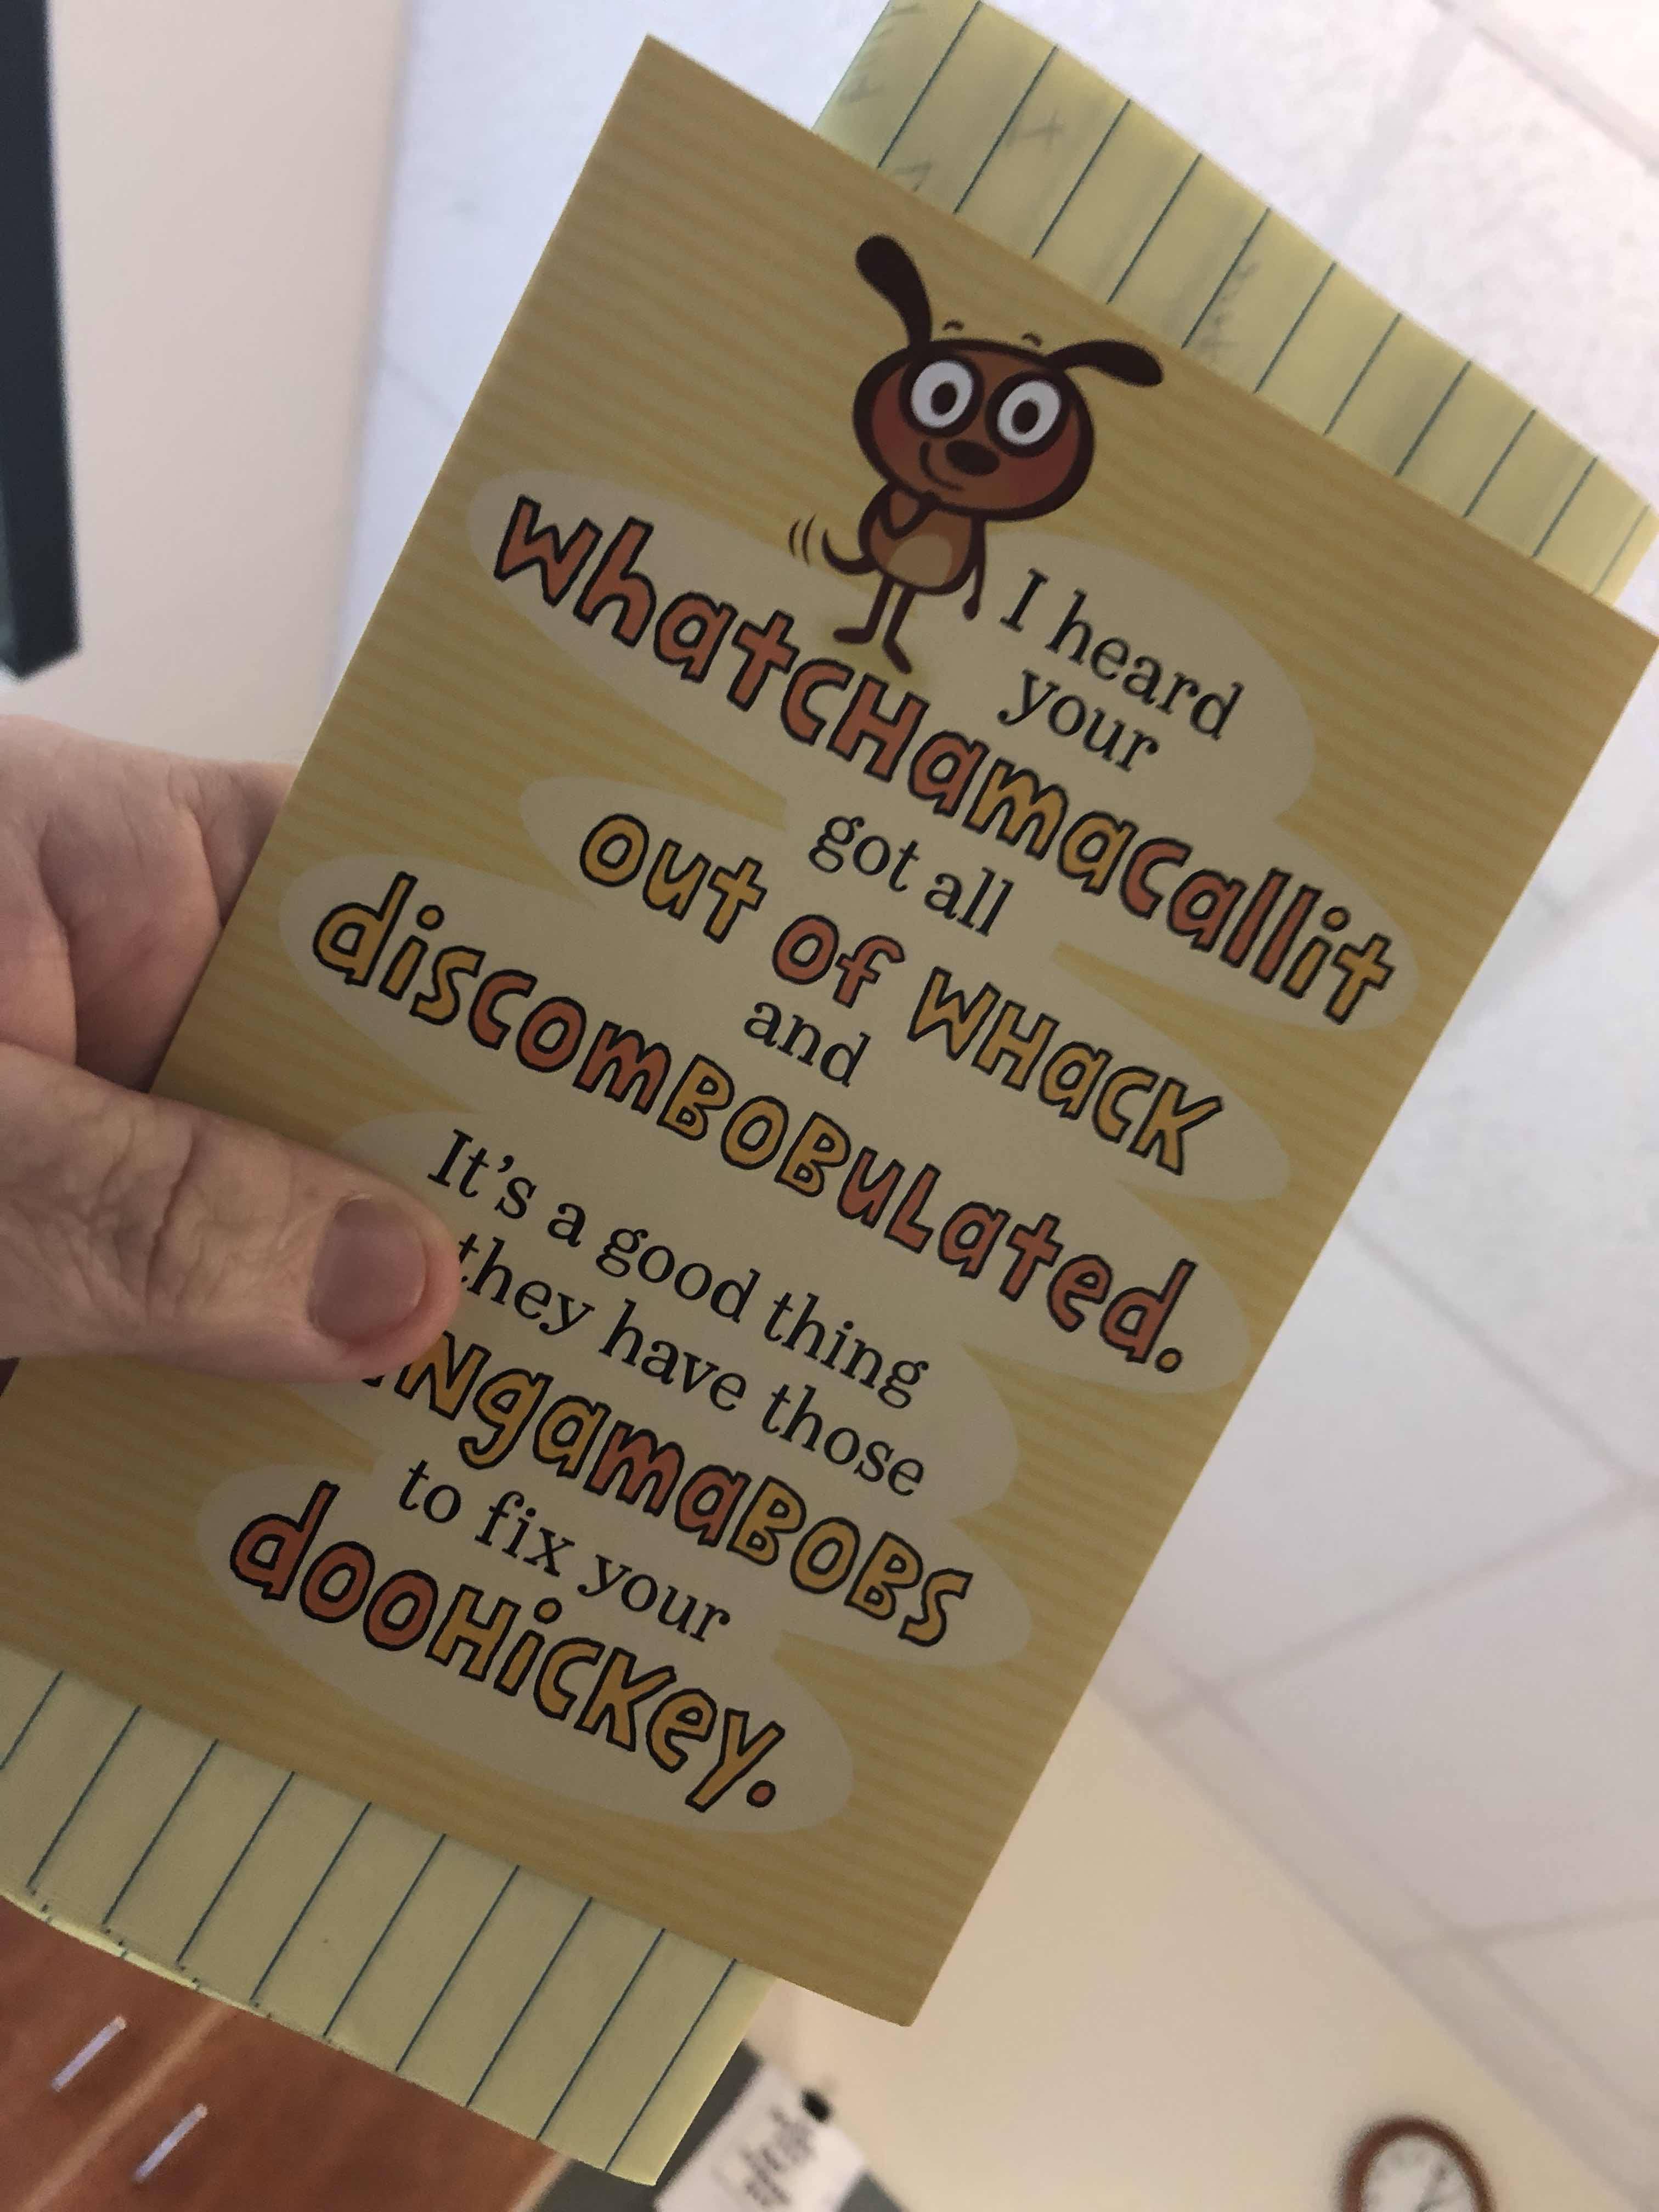 I heard
your
whatcHamacallit
got all
out of WHacK
and
discomBOBuLated.
It's a good thing
they have those
to fix your
dooHicKey.